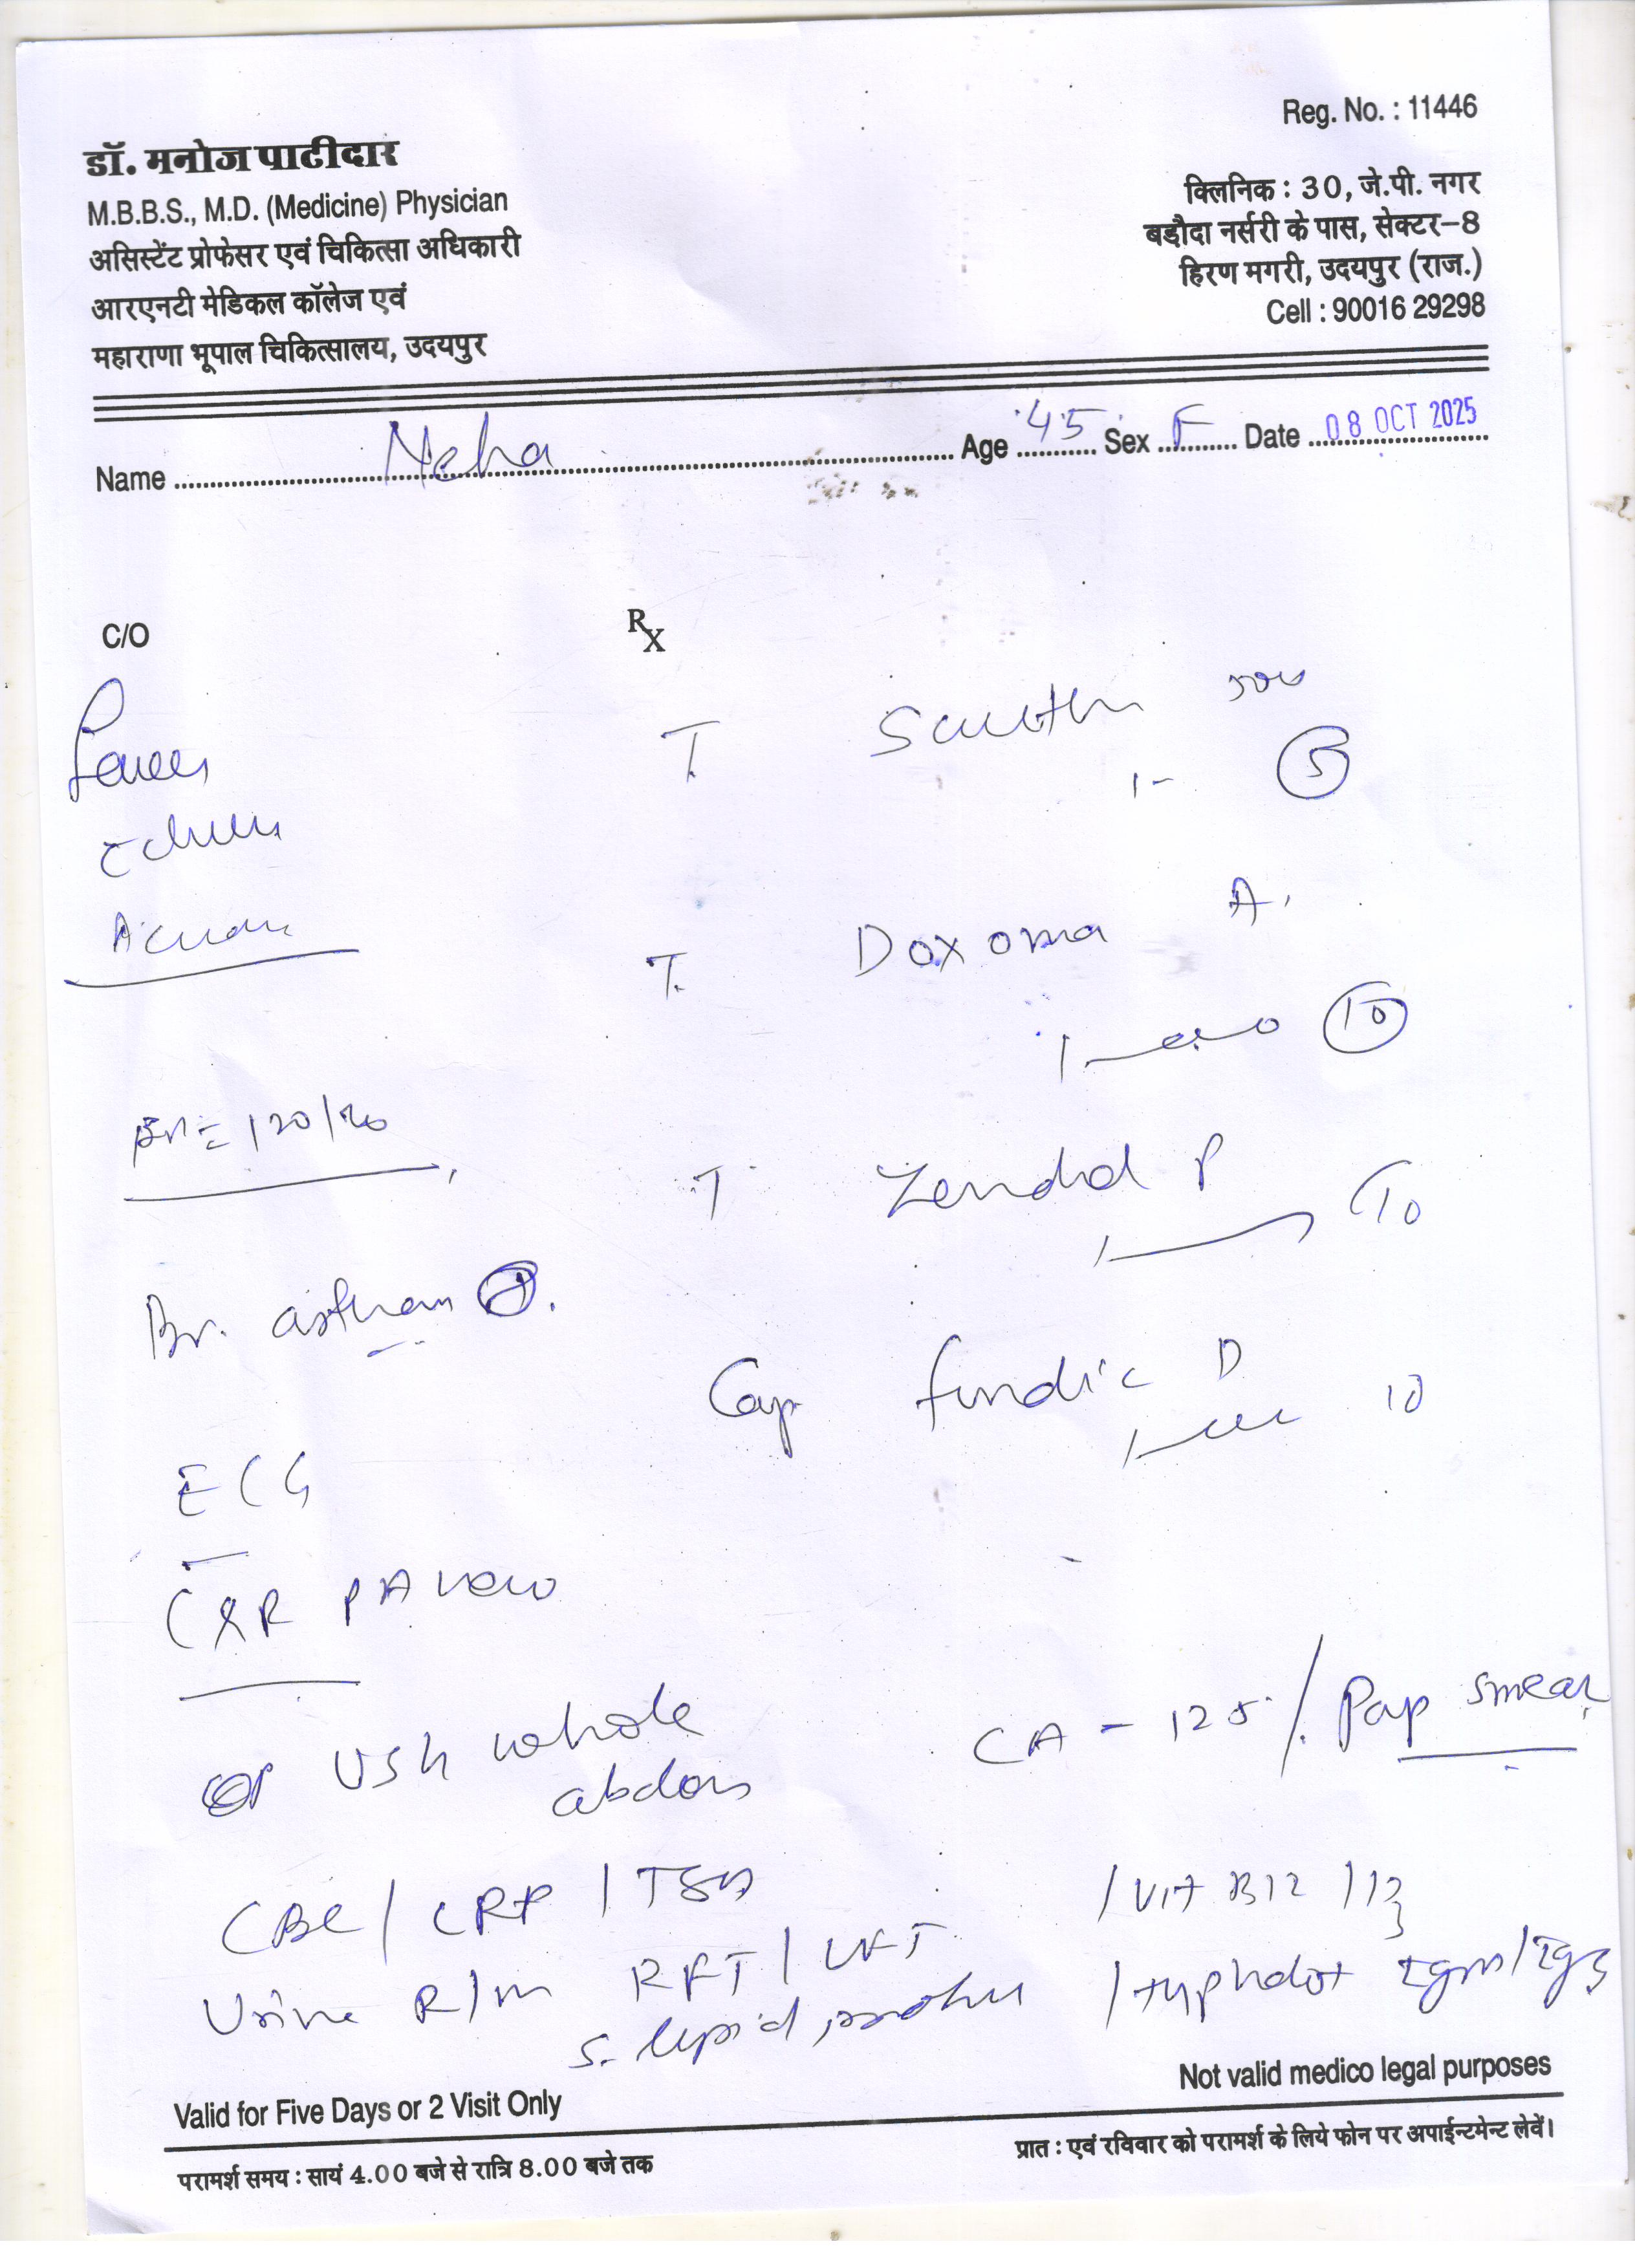 Reg. No. : 11446
डॉ. मनोज पाटीदार
M.B.B.S., M.D. (Medicine) Physician
असिस्टेंट प्रोफेसर एवं चिकित्सा अधिकारी
आरएनटी मेडिकल कॉलेज एवं
महाराणा भूपाल चिकित्सालय, उदयपुर
क्लिनिक : 30, जे.पी. नगर
बड़ौदा नर्सरी के पास, सेक्टर-8
हिरण मगरी, उदयपुर (राज.)
Cell : 90016 29298
Name Neha Age 45 Sex F Date 08 OCT 2025
C/O
Rx
T. 500
1- 5
T. Doxoma A.
1 10
T P
10
Cap D
1 10
= 120/
Br.
ECG
CXR PA view
USG whole
abdom
CA - 125 / Pap smear
CBC / CRP / TSH / Vit B12 / D3
Urine R/m RFT / LFT / typhidot Igm / Igg
S. lipid
Not valid medico legal purposes
Valid for Five Days or 2 Visit Only
परामर्श समय : सायं 4.00 बजे से रात्रि 8.00 बजे तक
प्रात : एवं रविवार को परामर्श के लिये फोन पर अपाईन्टमेन्ट लेवें।